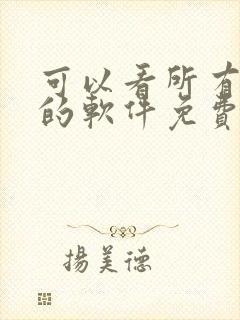 可以看所有
的軟件免費
揚美德